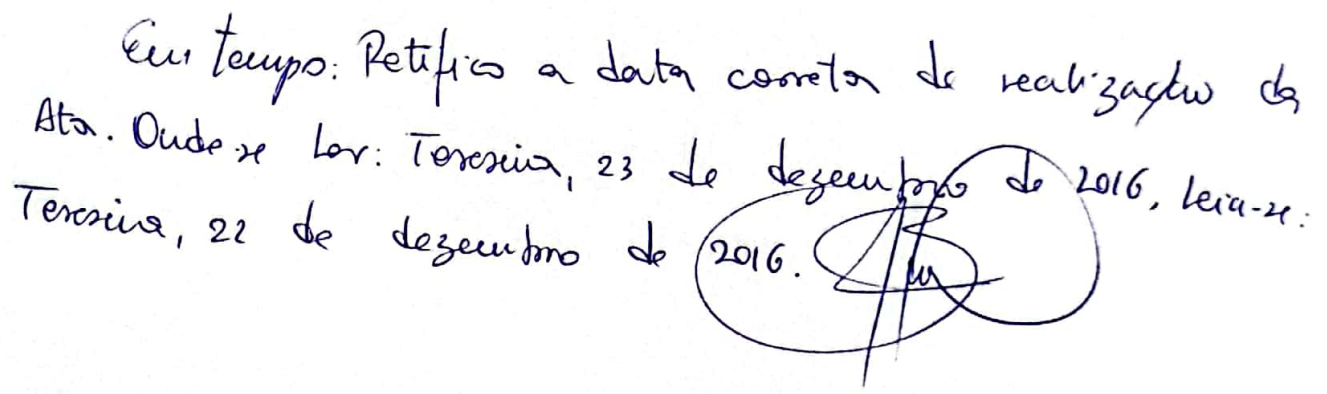 Em tempo: Retifico a data correta de realização da
Ata. Onde se ler: Teresina, 23 de dezembro de 2016, leia-se:
Teresina, 22 de dezembro de 2016.